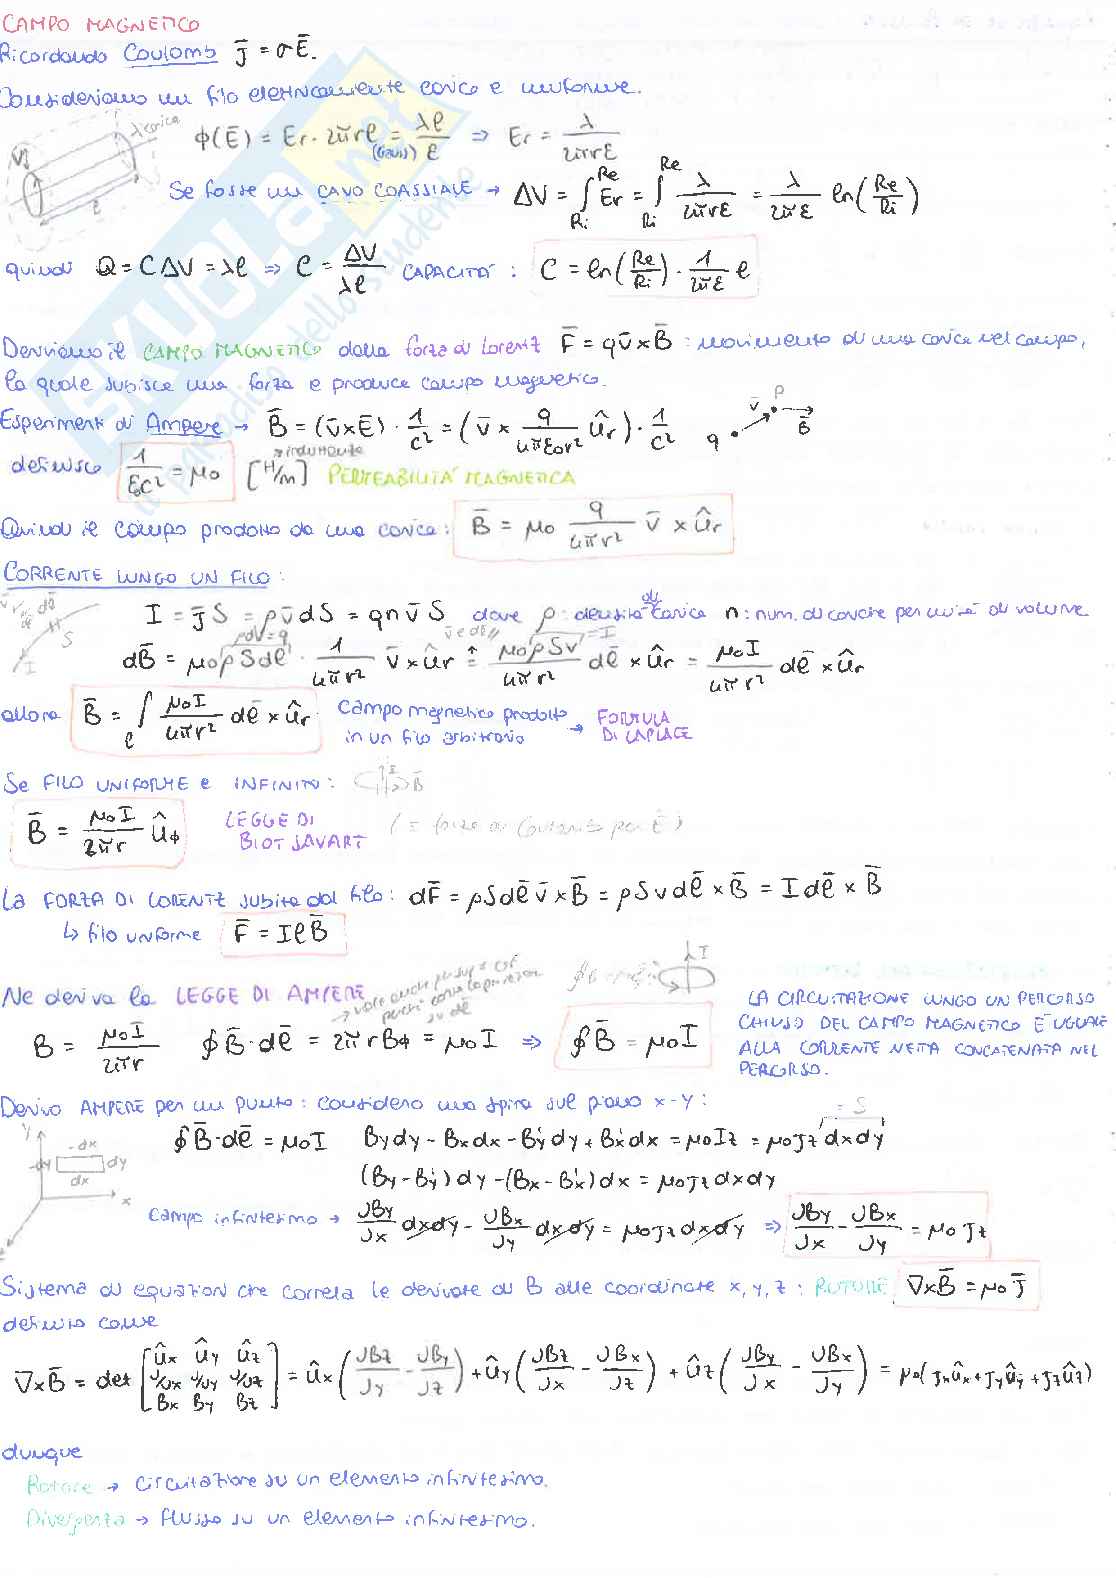 CAMPO MAGNETICO
Ricordando Coulomb J̄ = σĒ.
Consideriamo un filo elettricamente carico e uniforme.
λ carica
Φ(Ē) = Er · 2πrℓ = λℓ/ε ⇒ Er = λ/2πrε
(Gauss)
Se fosse un CAVO COASSIALE → ΔV = ∫_Ri^Re Er = ∫_Ri^Re λ/2πrε = λ/2πε ln(Re/Ri)
quindi Q = CΔV = λℓ ⇒ C = ΔV/λℓ CAPACITÁ : C = ln(Re/Ri) · 1/2πε ℓ
Deriviamo il CAMPO MAGNETICO dalla forza di Lorentz F̄ = qv̄ × B̄ : movimento di una carica nel campo,
la quale subisce una forza e produce campo magnetico.
Esperimenti di Ampere → B̄ = (v̄ × Ē) · 1/c² = (v̄ × q/4πε0r² ûr) · 1/c²
definisco 1/εc² = μ0 [H/m] PERMEABILITÁ MAGNETICA
Quindi il campo prodotto da una carica : B̄ = μ0 q/4πr² v̄ × ûr
CORRENTE LUNGO UN FILO :
I = J̄ S = ρv̄dS = qnv̄S dove ρ : densità di carica n : num. di cariche per unità di volume
ρdV = q v̄ e dℓ̄ // = I
dB̄ = μ0ρSdℓ · 1/4πr² v̄ × ûr = μ0ρSv/4πr² dℓ̄ × ûr = μ0I/4πr² dℓ̄ × ûr
allora B̄ = ∫_ℓ μ0I/4πr² dℓ̄ × ûr Campo magnetico prodotto in un filo arbitrario → FORMULA DI LAPLACE
Se FILO UNIFORME e INFINITO :
B̄ = μ0I/2πr ûϕ LEGGE DI BIOT SAVART ( = forza di Coulomb per Ē )
La FORZA DI LORENTZ subita dal filo : dF̄ = ρSdℓ̄ v̄ × B̄ = ρSvdℓ̄ × B̄ = Idℓ̄ × B̄
↳ filo uniforme F̄ = IℓB̄
Ne deriva la LEGGE DI AMPERE
B = μ0I/2πr ∮B̄ · dℓ̄ = 2πrBϕ = μ0I ⇒ ∮B̄ = μ0I
LA CIRCUITAZIONE LUNGO UN PERCORSO
CHIUSO DEL CAMPO MAGNETICO È UGUALE
ALLA CORRENTE NETTA CONCATENATA NEL
PERCORSO.
Derivo AMPERE per un punto : considero una spira sul piano x-y :
∮B̄ · dℓ̄ = μ0I Bydy - Bxdx - B'ydy + B'xdx = μ0Iz = μ0Jz dxdy
= S
(By - B'y)dy - (Bx - B'x)dx = μ0Jz dxdy
y -dx -dy dy dx x z
Campo infinitesimo → ∂By/∂x dxdy - ∂Bx/∂y dxdy = μ0Jz dxdy ⇒ ∂By/∂x - ∂Bx/∂y = μ0Jz
Sistema di equazioni che correla le derivate di B alle coordinate x, y, z : ROTORE ∇×B̄ = μ0J̄
definito come
∇×B̄ = det [ûx ûy ûz ∂/∂x ∂/∂y ∂/∂z Bx By Bz] = ûx(∂Bz/∂y - ∂By/∂z) + ûy(∂Bz/∂x - ∂Bx/∂z) + ûz(∂By/∂x - ∂Bx/∂y) = μ0(Jxûx + Jyûy + Jzûz)
dunque
Rotore → circuitazione su un elemento infinitesimo.
Divergenza → flusso su un elemento infinitesimo.